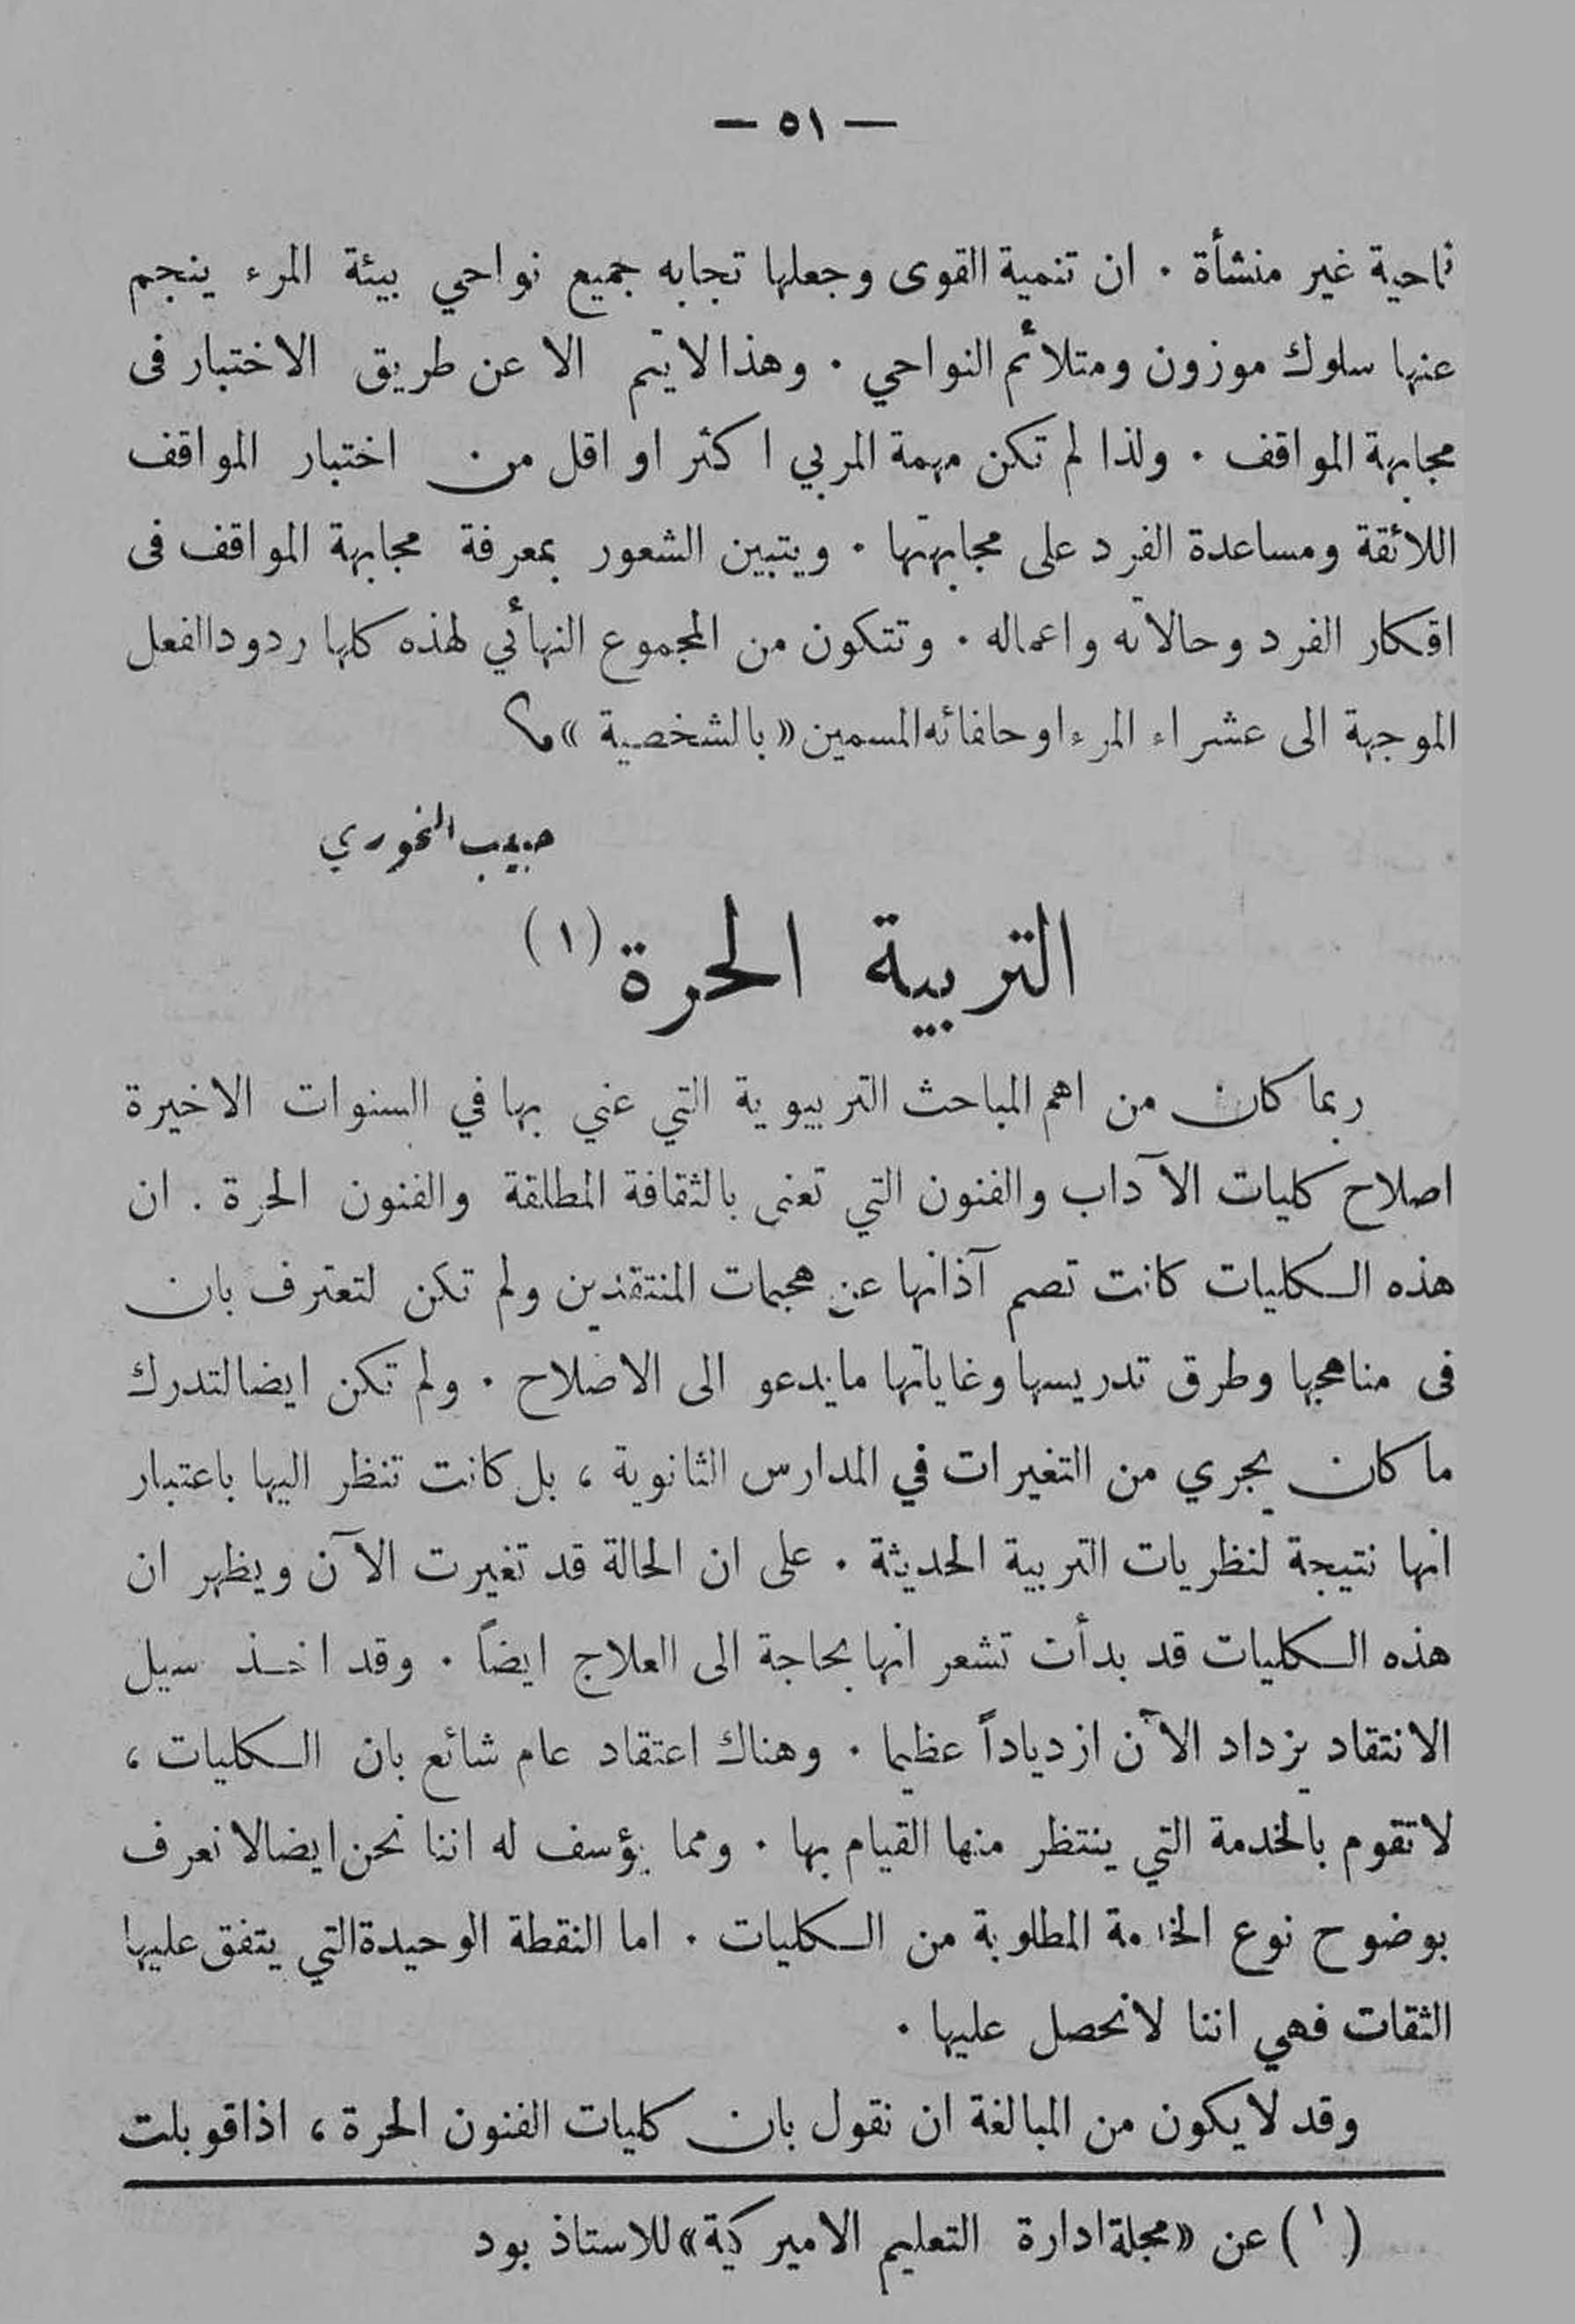 — ٥١ —
ناحية غير منشأة . ان تنمية القوى وجعلها تجابه جميع نواحي بيئة المرء ينجم
عنها سلوك موزون ومتلائم النواحي . وهذا لا يتم الا عن طريق الاختبار فى
مجابهة المواقف . ولذا لم تكن مهمة المربي اكثر او اقل من اختبار المواقف
اللائقة ومساعدة الفرد على مجابهتها . ويتبين الشعور بمعرفة مجابهة المواقف فى
افكار الفرد وحالاته واعماله . وتتكون من المجموع النهائي لهذه كلها ردود الفعل
الموجهة الى عشراء المرء او حلفائه المسمين « بالشخصية »
حبيب الخوري
التربية الحرة (١)
ربما كان من اهم المباحث التربيوية التي عني بها في السنوات الاخيرة
اصلاح كليات الآداب والفنون التي تعنى بالثقافة المطلقة والفنون الحرة . ان
هذه الكليات كانت تصم آذانها عن هجمات المنتقدين ولم تكن لتعترف بان
فى مناهجها وطرق تدريسها وغاياتها ما يدعو الى الاصلاح . ولم تكن ايضا لتدرك
ما كان يجري من التغيرات في المدارس الثانوية ، بل كانت تنظر اليها باعتبار
انها نتيجة لنظريات التربية الحديثة . على ان الحالة قد تغيرت الآن ويظهر ان
هذه الكليات قد بدأت تشعر انها بحاجة الى العلاج ايضاً . وقد اخذ سيل
الانتقاد يزداد الآن ازدياداً عظيما . وهناك اعتقاد عام شائع بان الكليات ،
لا تقوم بالخدمة التي ينتظر منها القيام بها . ومما يؤسف له اننا نحن ايضا لا نعرف
بوضوح نوع الخدمة المطلوبة من الكليات . اما النقطة الوحيدة التي يتفق عليها
الثقات فهي اننا لا نحصل عليها .
وقد لا يكون من المبالغة ان نقول بان كليات الفنون الحرة ، اذا قوبلت
(١) عن « مجلة ادارة التعليم الاميركية » للاستاذ بود